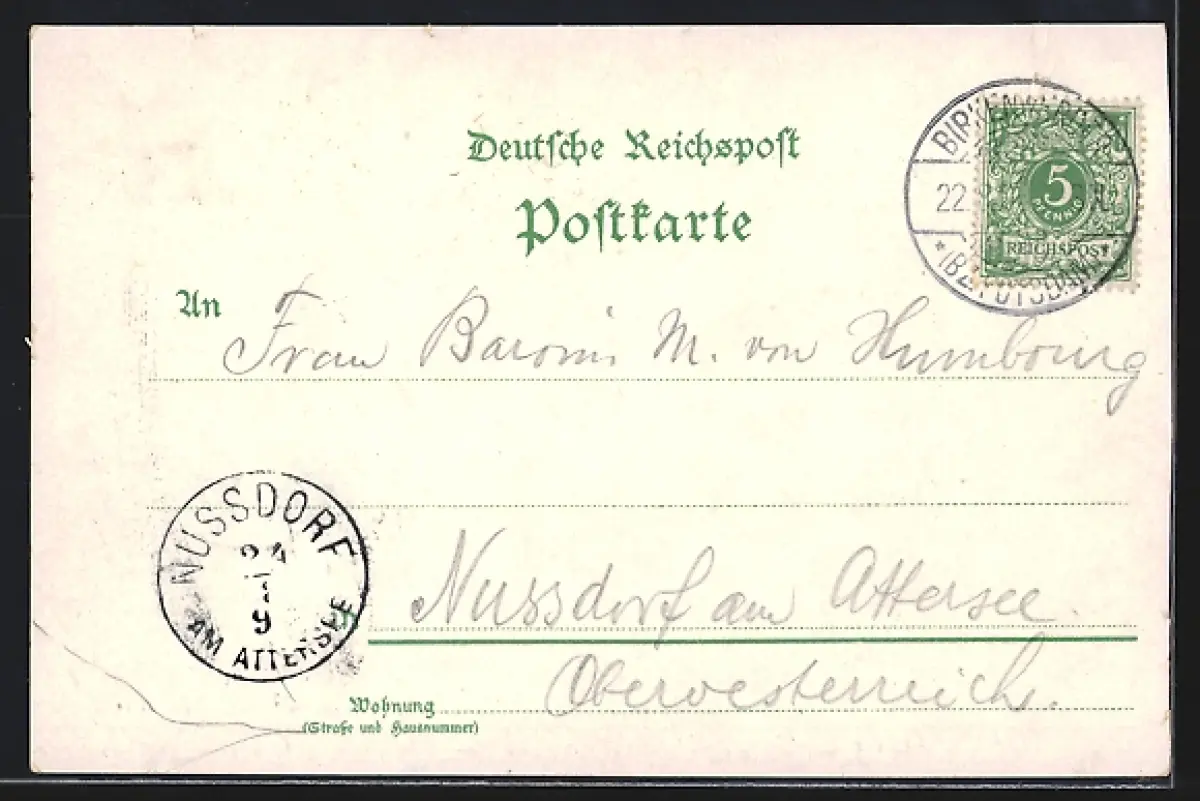 Deutsche Reichspost
Postkarte
22.
5
PFENNIG
REICHSPOST
An
Frau Baronin M. von Humbourg
NUSSDORF
24
9
AM ATTERSEE
Nussdorf am Attersee
Oberoesterreich.
Wohnung
(Straße und Hausnummer)